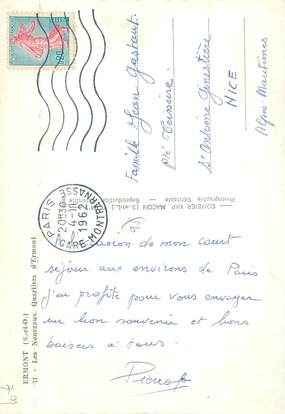 0,20
Famille Jean Gastaut
St Antoine Ginestière
NICE
Alpes Maritimes
PARIS
20H30
4-10
1962
GARE-MONTPARNASSE
COMBIER IMP. MACON (S.-et-L.)
Photographie Véritable - Reproduction
95
de mon court
séjour aux environs de Paris
j'en profite pour vous envoyer
un bon souvenir et bons
baisers à tous.
ERMONT (S.-et-O.)
11 - Les Nouveaux Quartiers d'Ermont